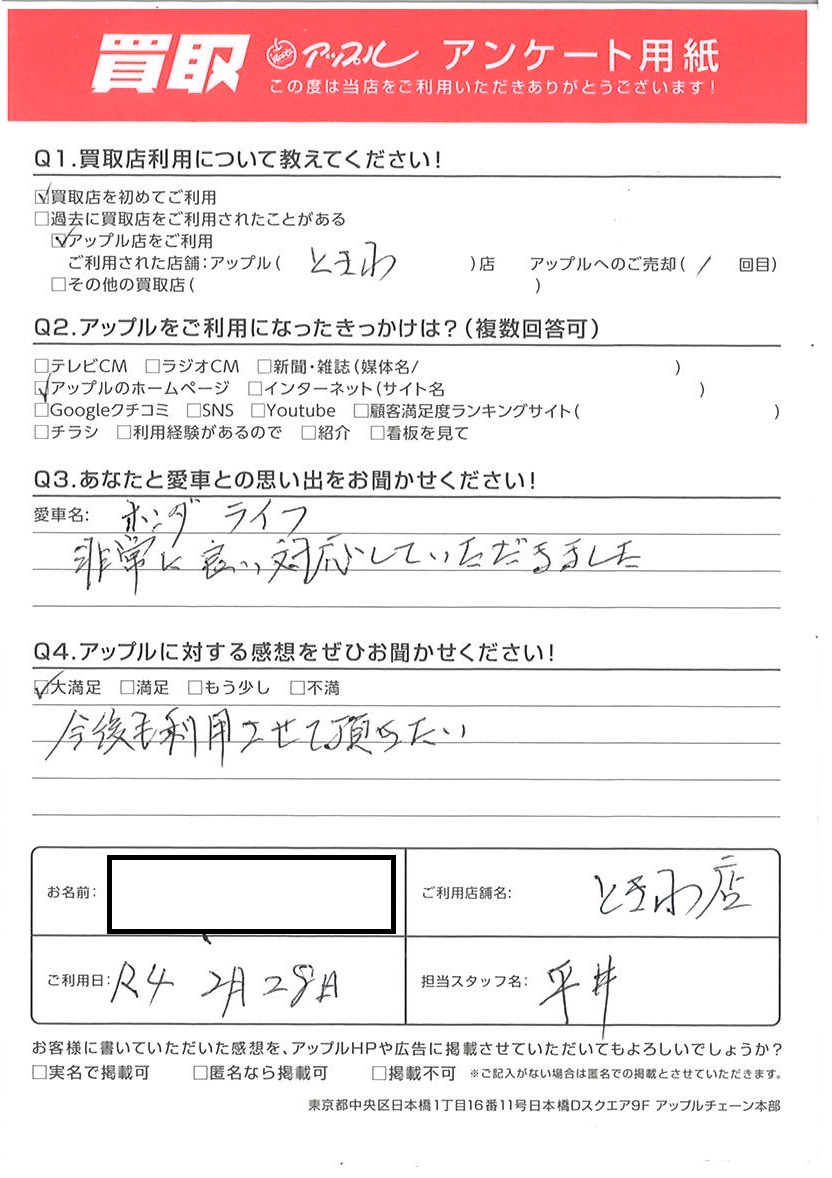 買取 アップル アンケート用紙
この度は当店をご利用いただきありがとうございます！
Q1.買取店利用について教えてください！
☑買取店を初めてご利用
□過去に買取店をご利用されたことがある
☑アップル店をご利用
ご利用された店舗：アップル（ ときわ ）店 アップルへのご売却（ / 回目）
□その他の買取店（ ）
Q2.アップルをご利用になったきっかけは？（複数回答可）
□テレビCM □ラジオCM □新聞・雑誌（媒体名/ ）
☑アップルのホームページ □インターネット（サイト名 ）
□Googleクチコミ □SNS □Youtube □顧客満足度ランキングサイト（ ）
□チラシ □利用経験があるので □紹介 □看板を見て
Q3.あなたと愛車との思い出をお聞かせください！
愛車名： ホンダ ライフ
非常に良い対応していただきました
Q4.アップルに対する感想をぜひお聞かせください！
☑大満足 □満足 □もう少し □不満
今後も利用させて頂きたい
お名前： ご利用店舗名： ときわ店
ご利用日：R4 2月28日 担当スタッフ名： 平井
お客様に書いていただいた感想を、アップルHPや広告に掲載させていただいてもよろしいでしょうか？
□実名で掲載可 □匿名なら掲載可 □掲載不可 ※ご記入がない場合は匿名での掲載とさせていただきます。
東京都中央区日本橋1丁目16番11号日本橋Dスクエア9F アップルチェーン本部